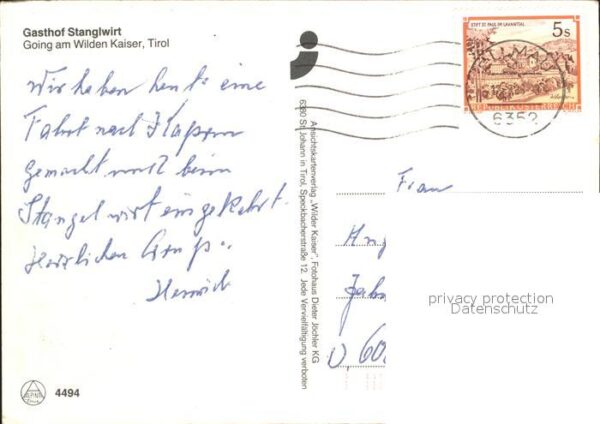 Gasthof Stanglwirt
Going am Wilden Kaiser, Tirol
Wir haben heute eine
Fahrt nach Kaprun
gemacht und beim
Stangelwirt eingekehrt.
Herzlichen Gruß.
Heinrich
4494
Ansichtskartenverlag „Wilder Kaiser“, Fotohaus Dieter Jöchler KG
6380 St. Johann in Tirol, Speckbacherstraße 12 Jede Vervielfältigung verboten
STIFT ST. PAUL IM LAVANTTAL
5s
REPUBLIK ÖSTERREICH
ELLMAU
6352
Frau
privacy protection
Oldthing